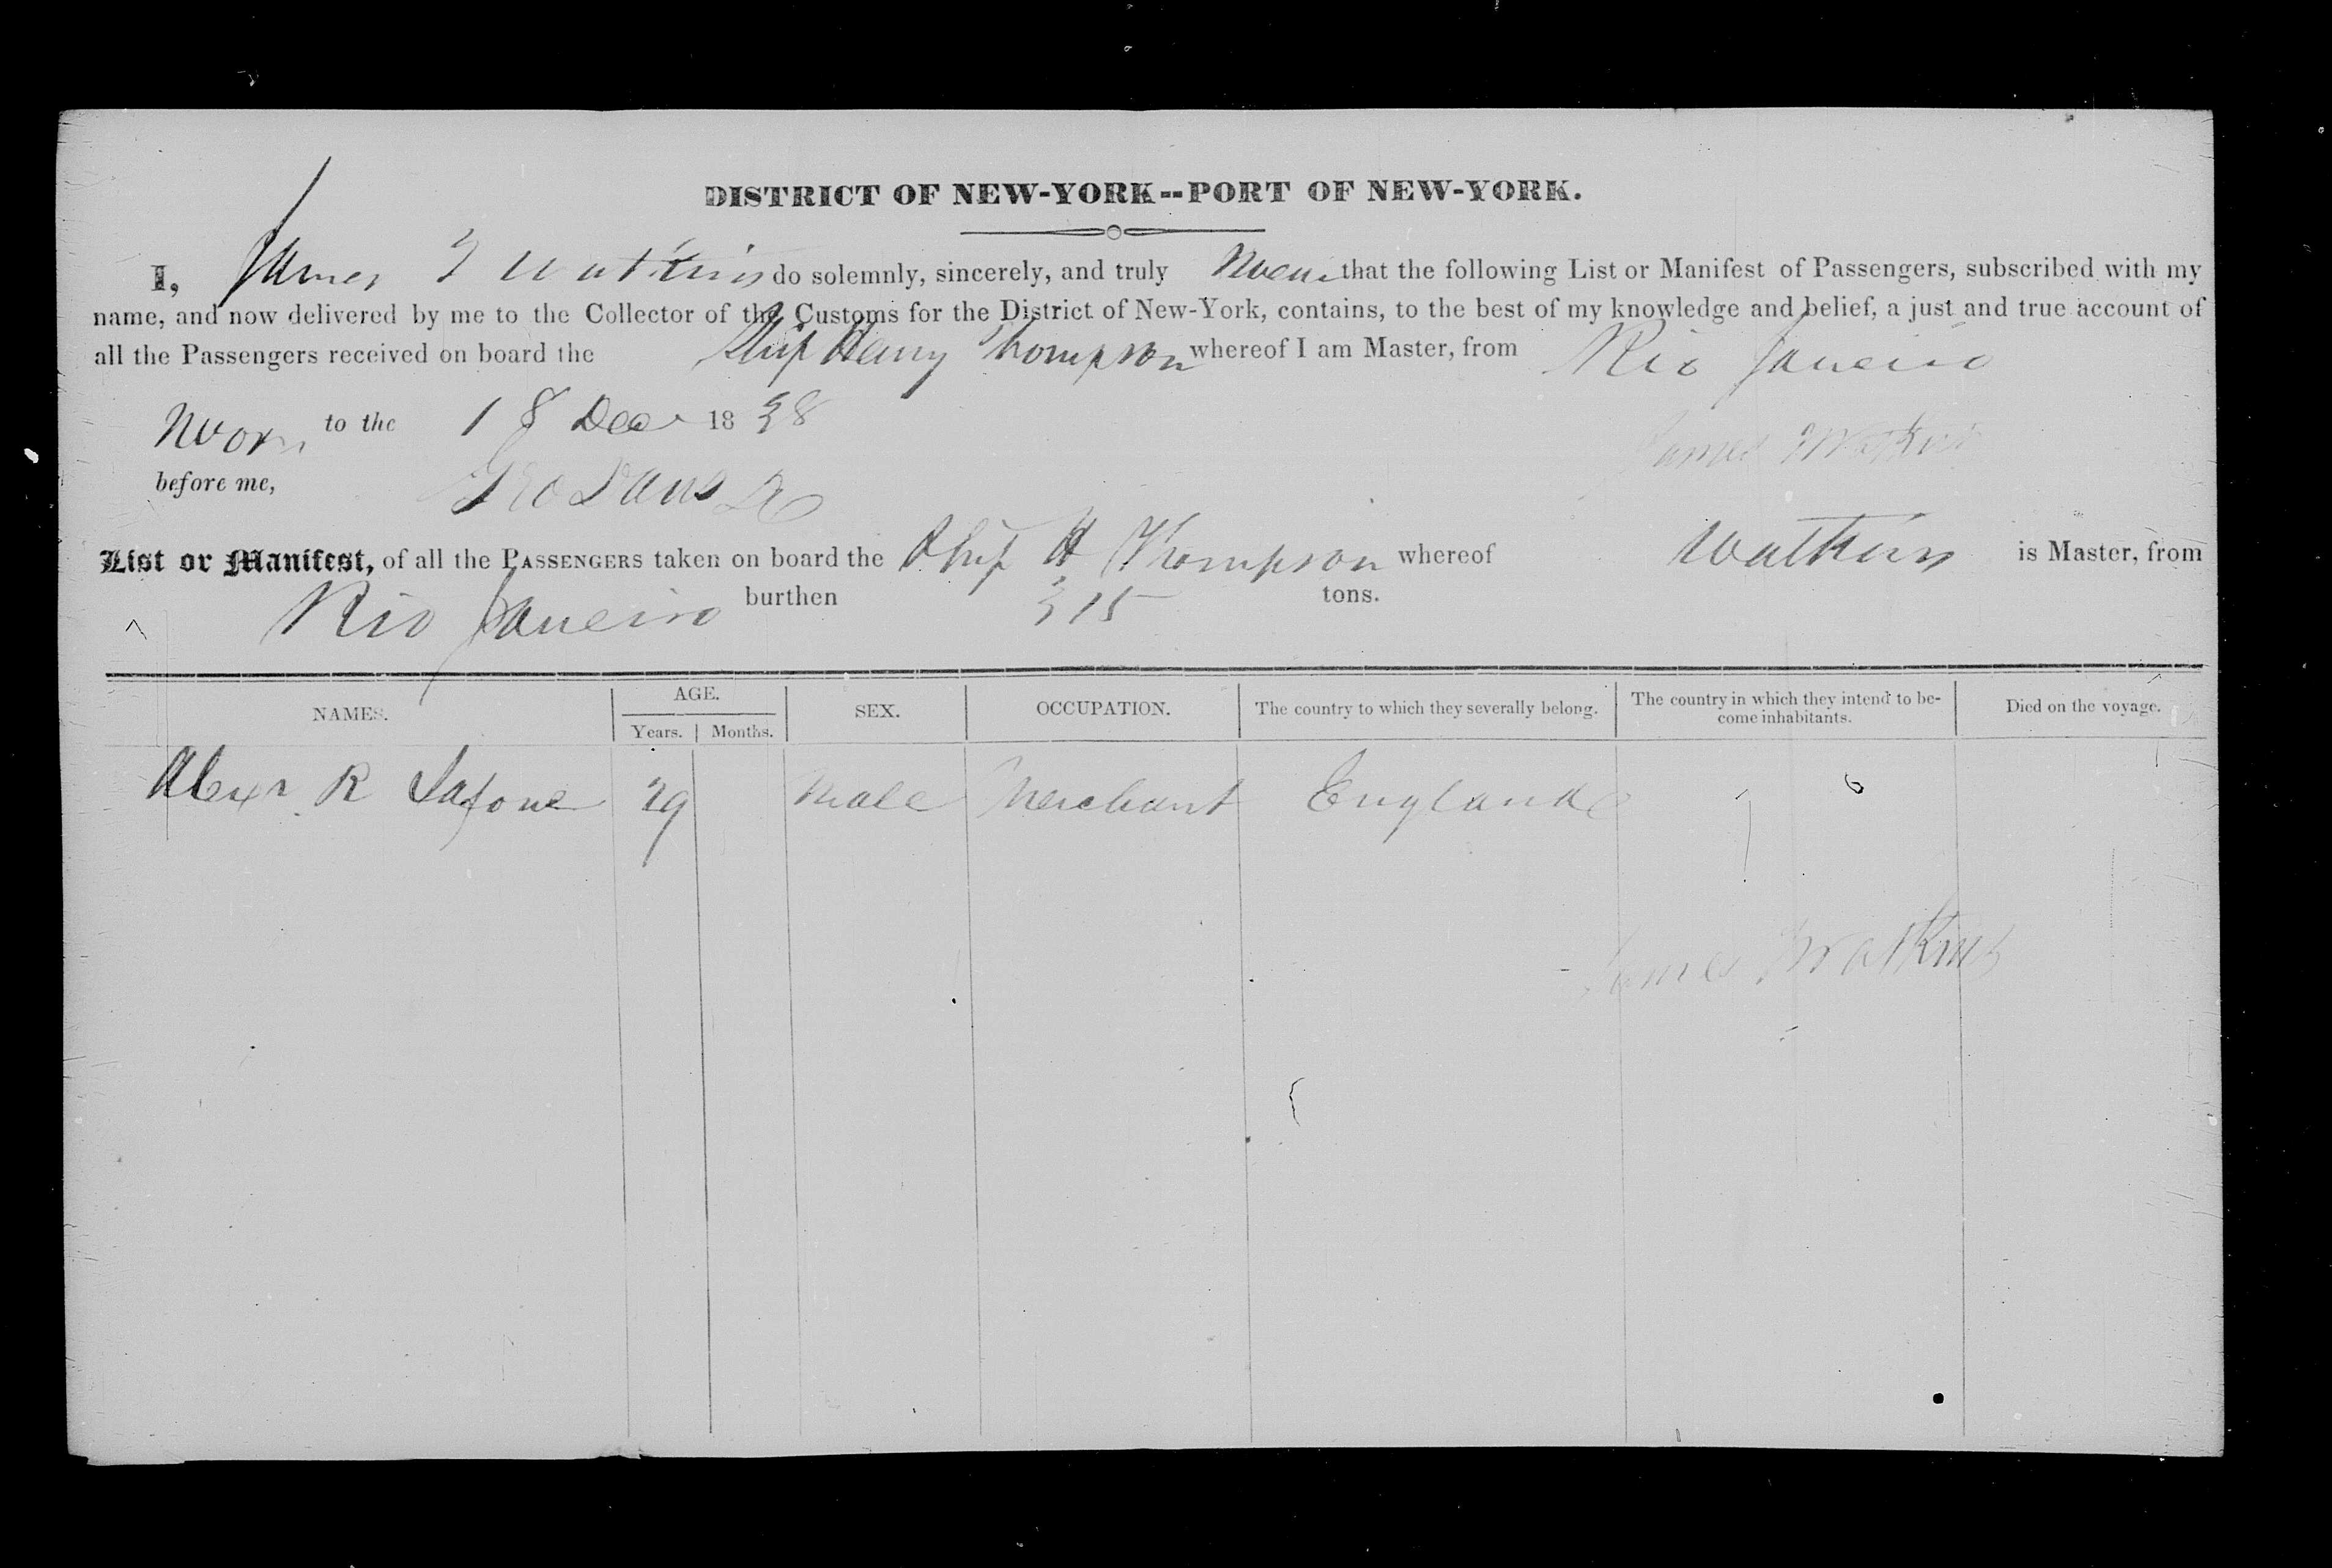 DISTRICT OF NEW-YORK--PORT OF NEW-YORK.
I, James T Watkins do solemnly, sincerely, and truly Swear that the following List or Manifest of Passengers, subscribed with my
name, and now delivered by me to the Collector of the Customs for the District of New-York, contains, to the best of my knowledge and belief, a just and true account of
all the Passengers received on board the Ship Henry Thompson whereof I am Master, from Rio Janeiro
Sworn to the 18 Dec 1838
James T Watkins
before me,
List or Manifest, of all the PASSENGERS taken on board the Ship H Thompson whereof Watkins is Master, from
Rio Janeiro burthen 315 tons.
NAMES. AGE. Years. Months. SEX. OCCUPATION. The country to which they severally belong. The country in which they intend to be-
come inhabitants. Died on the voyage.
Alexr R Lafone 29 Male Merchant England
James T Watkins